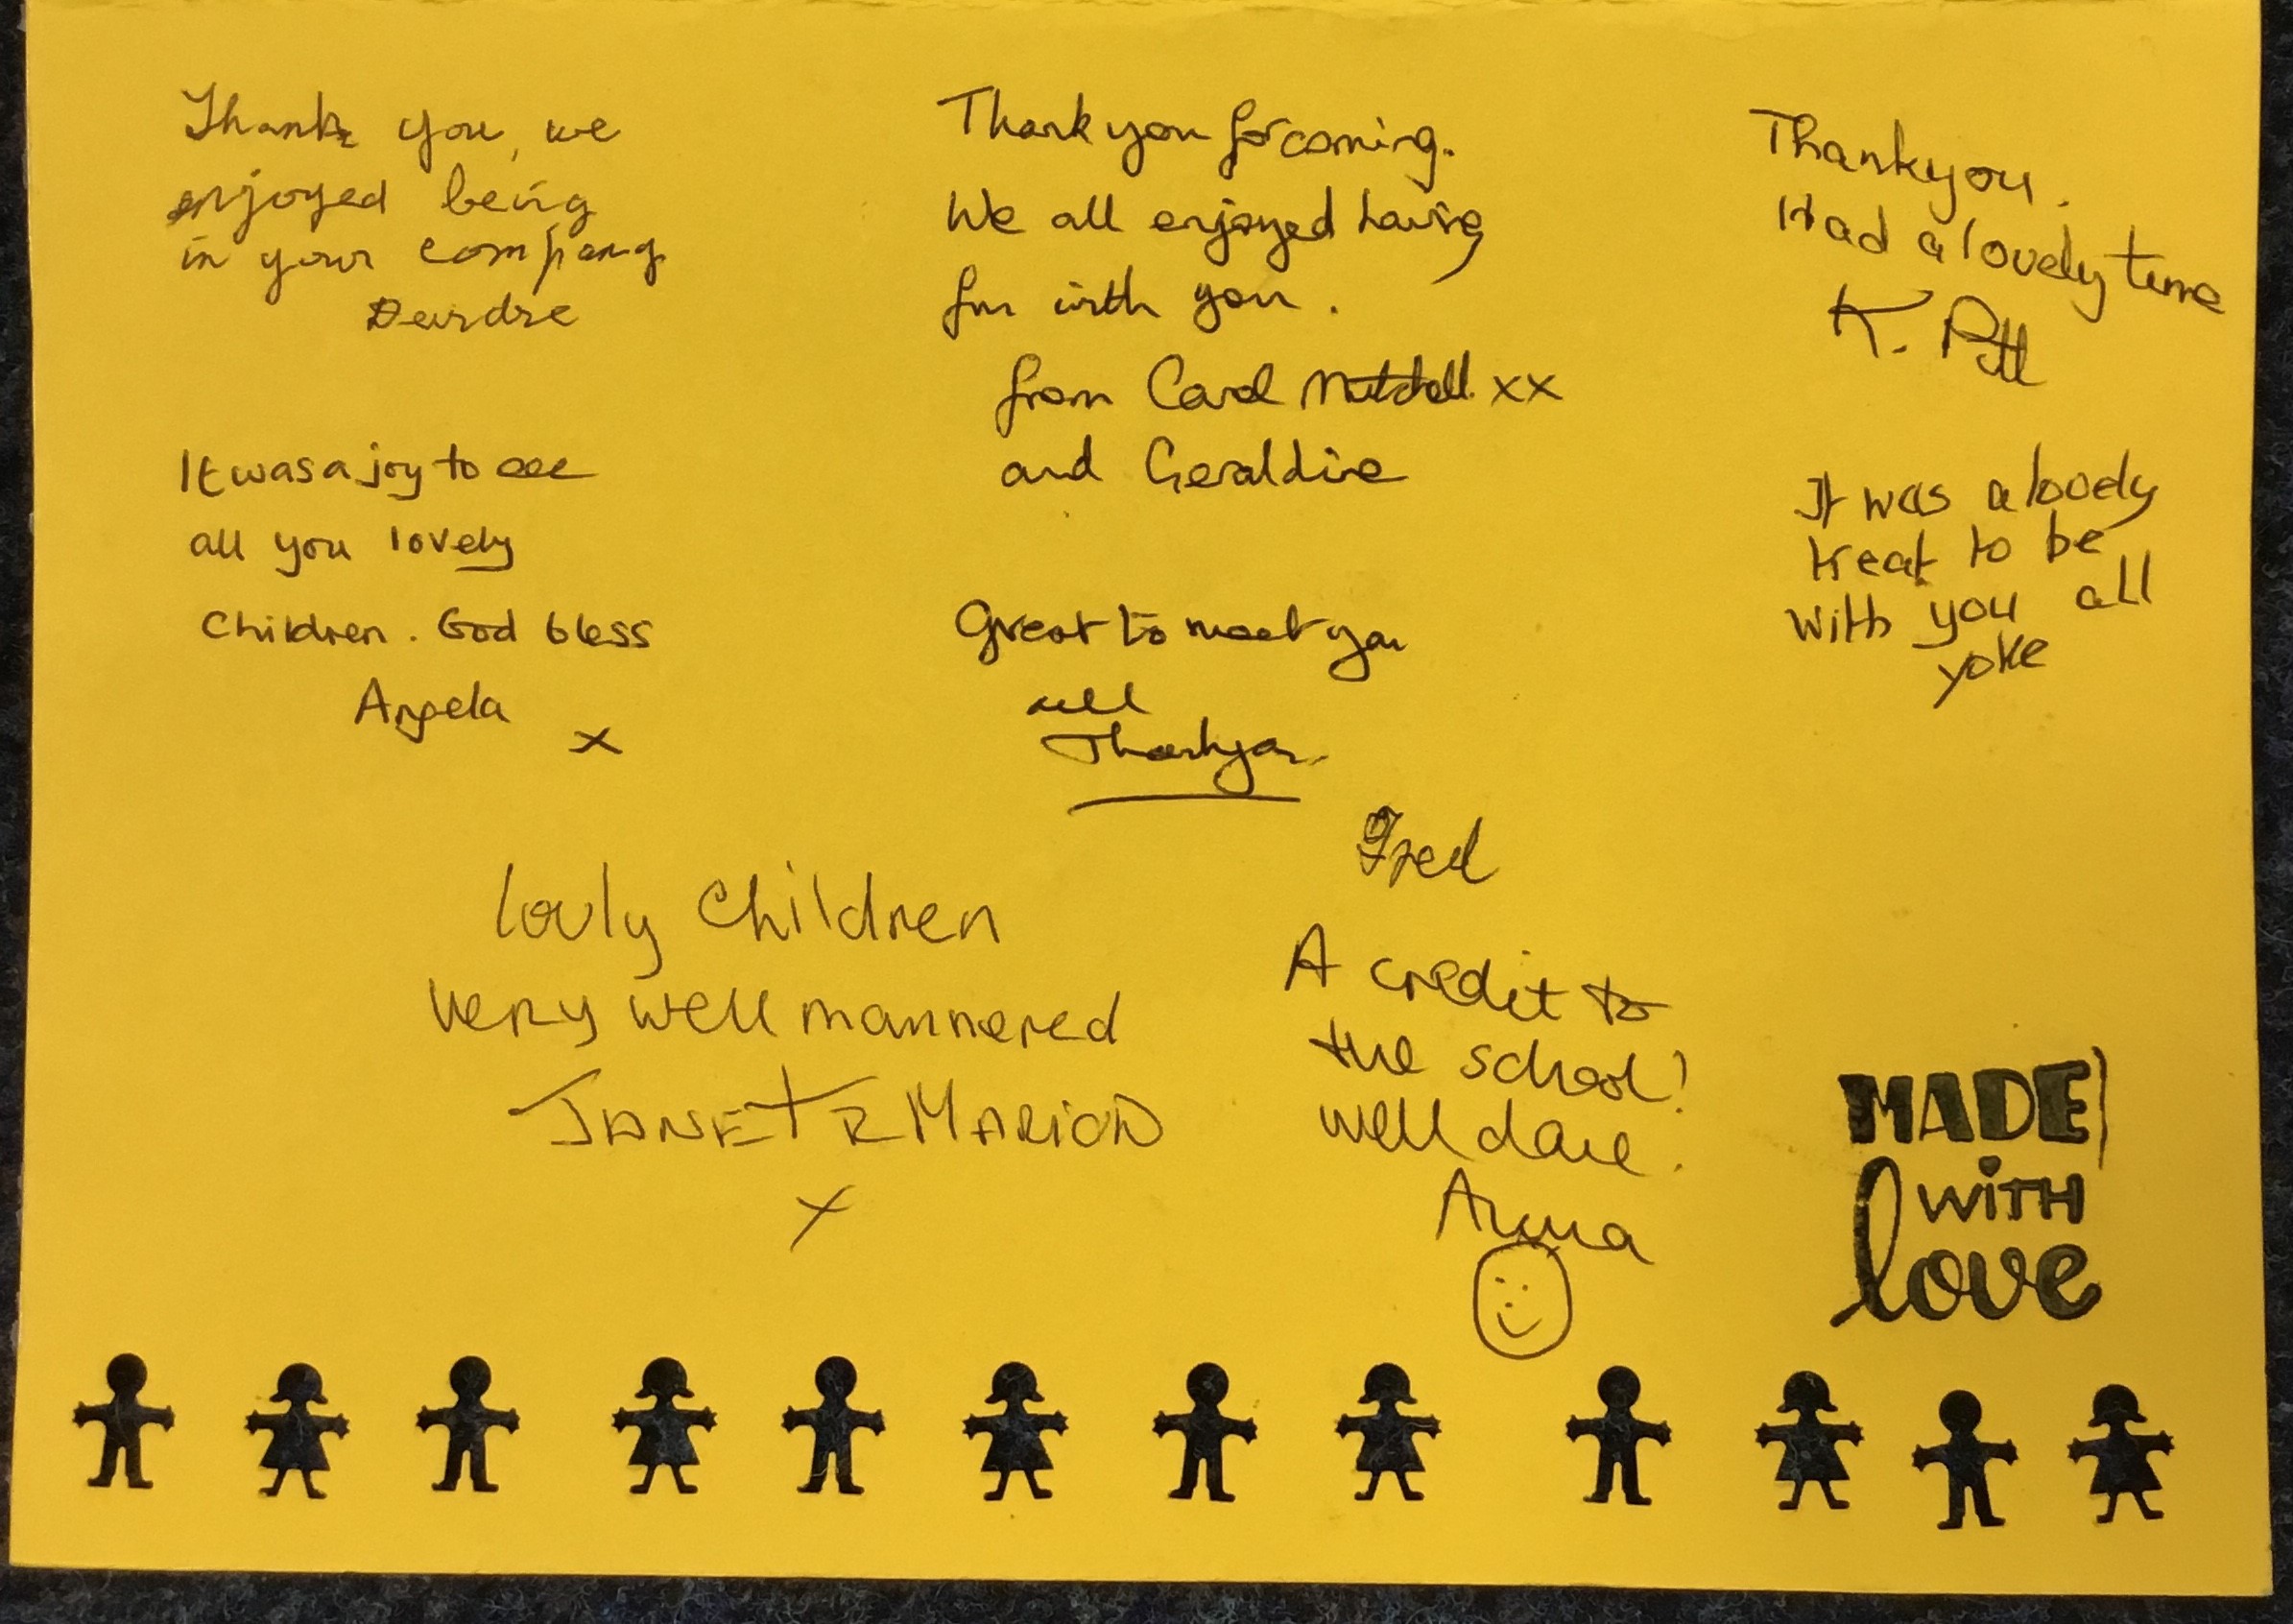 Thank you, we
enjoyed being
in your company
Deirdre
Thank you for coming.
We all enjoyed having
fun with you.
from Carol Mitchell xx
and Geraldine
Thankyou.
Had a lovely time
K.
It was a joy to see
all you lovely
Children. God bless
Angela
x
Great to meet you
all
Thankyou
It was a lovely
treat to be
with you all
yoke
Fred
lovly Children
very well mannered
JANET & MARION
x
A credit to
the school!
well done.
Anna
MADE
WITH
love